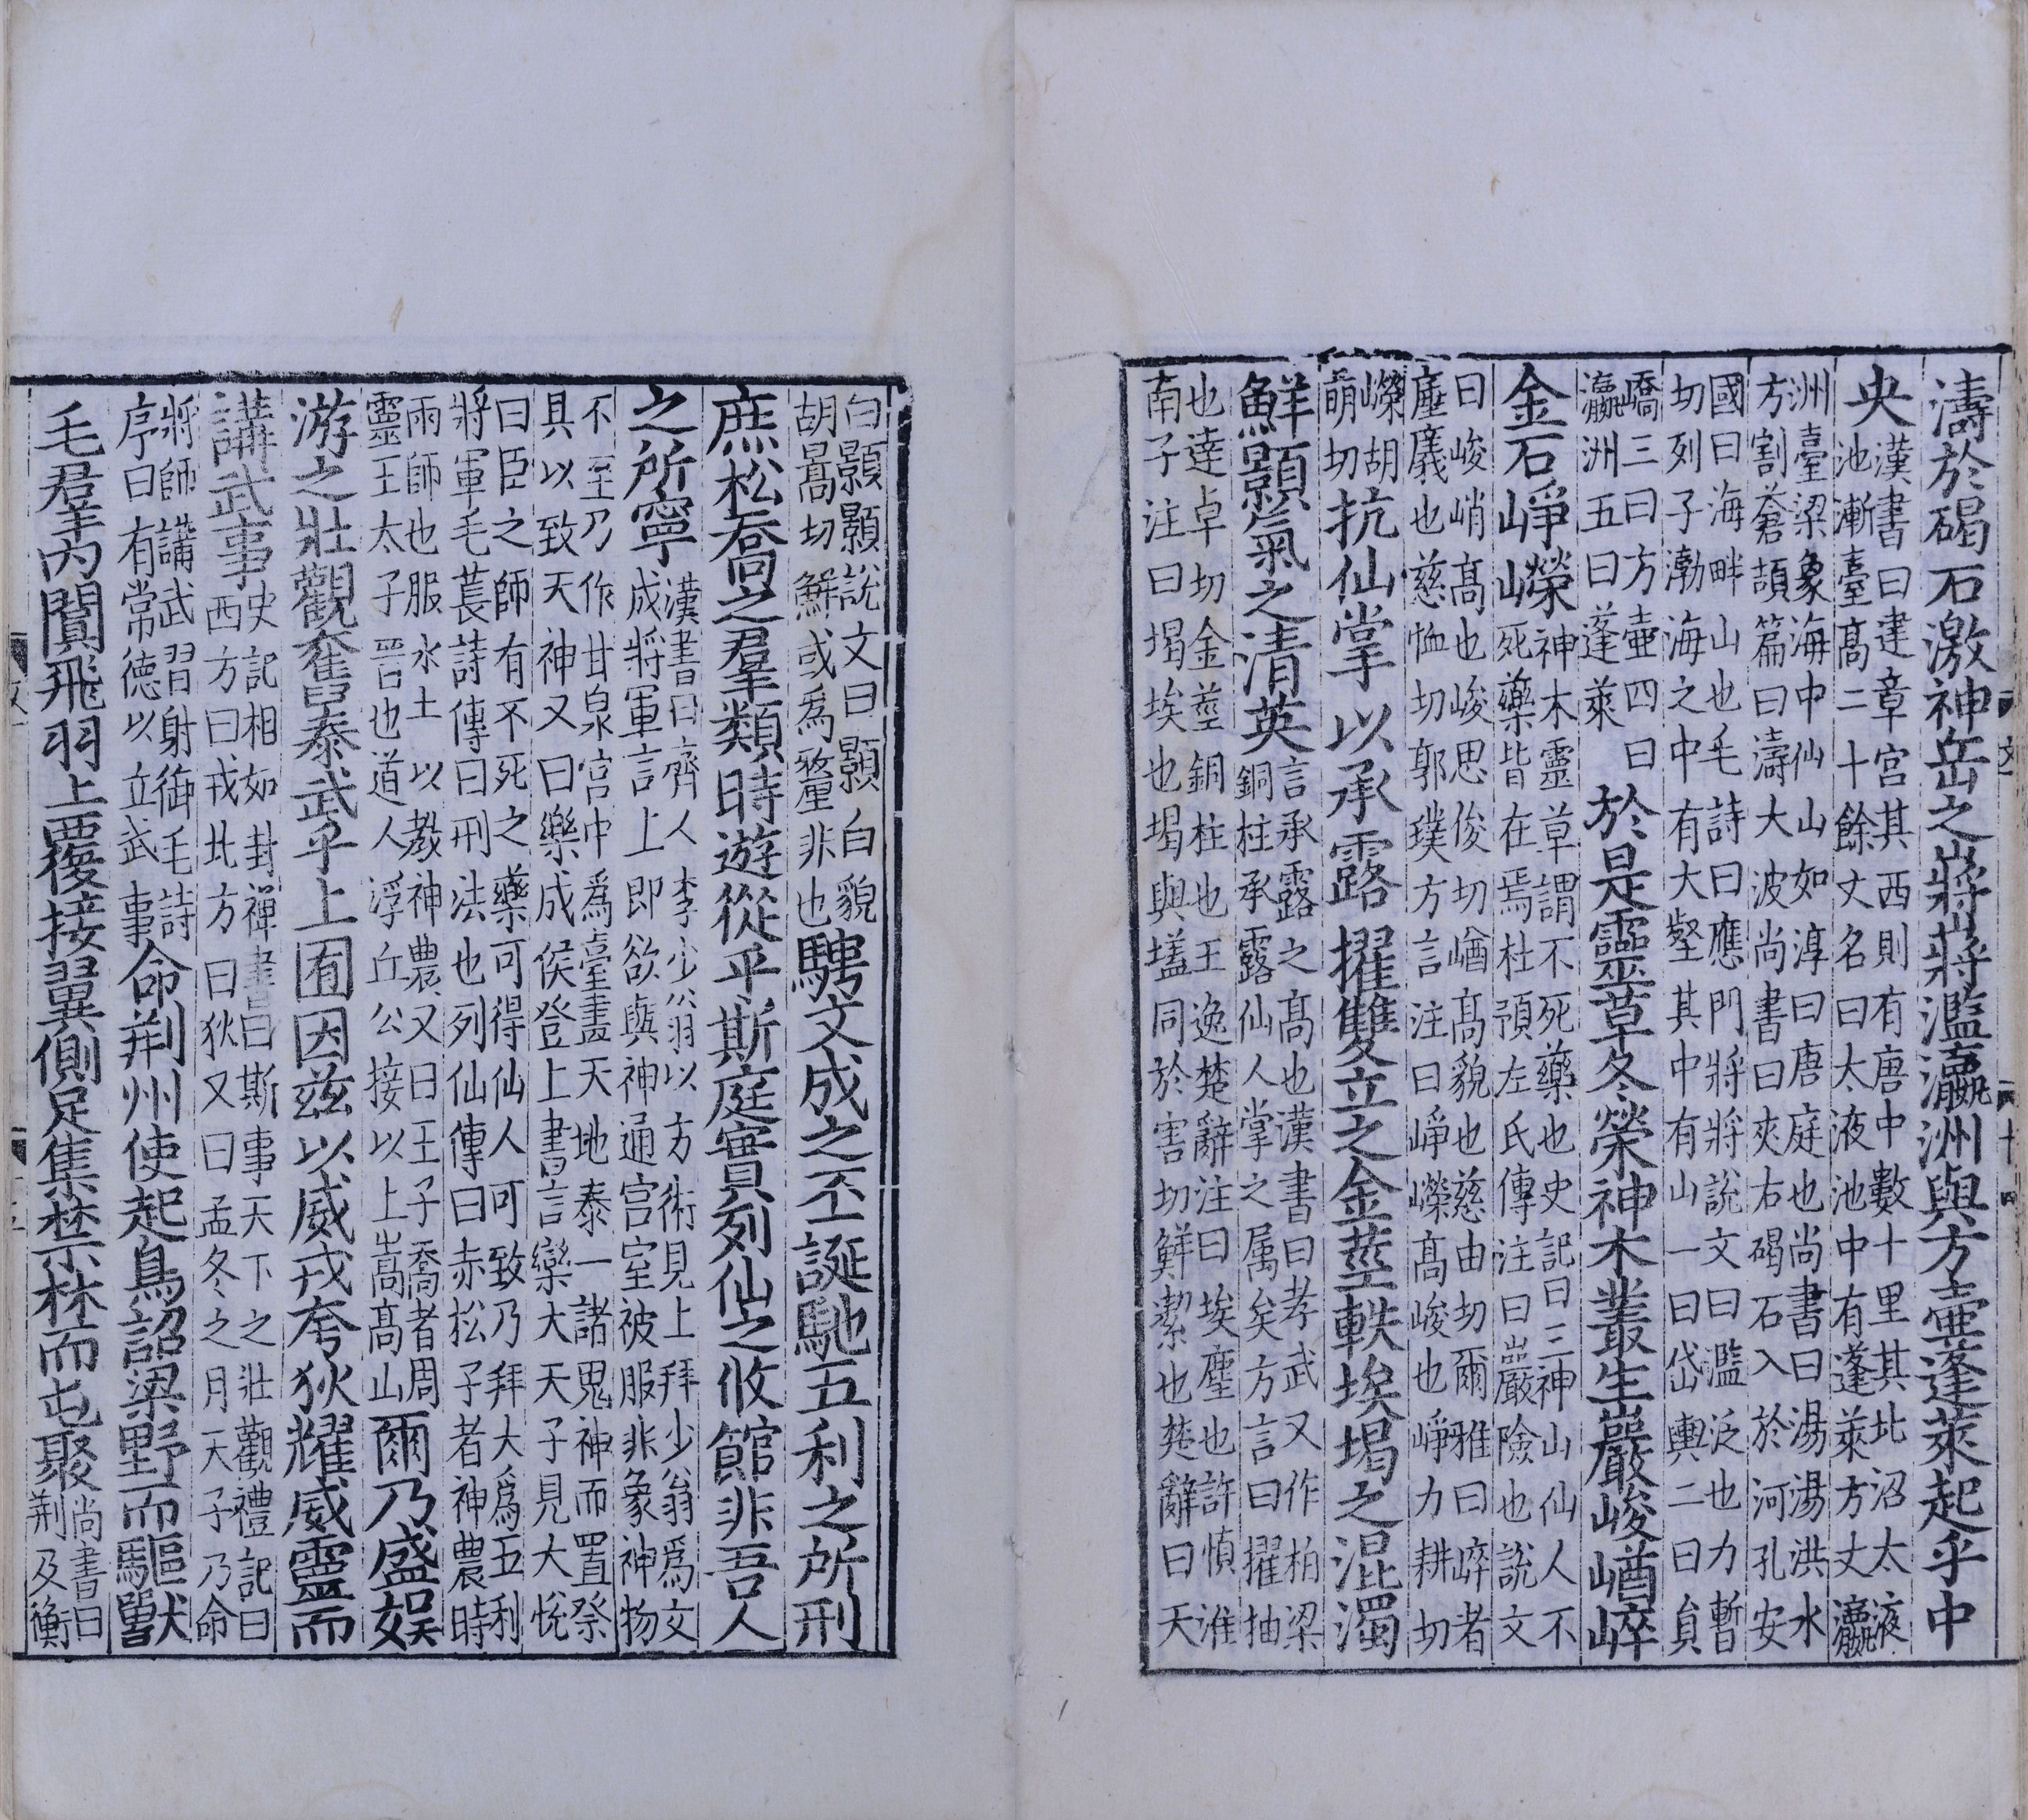 濤於碣石激神岳之嶈嶈濫瀛洲與方壺蓬萊起乎中
央漢書曰建章宮其西則有唐中數十里其北沼太液
池漸臺髙二十餘丈名曰太液池中有蓬萊方丈瀛
洲臺梁象海中仙山如淳曰唐庭也尚書曰湯湯洪水
方割蒼頡篇曰濤大波尚書曰夾右碣石入於河孔安
國曰海畔山也毛詩曰應門將將說文曰濫泛也力暫
切列子渤海之中有大壑其中有山一曰岱輿二曰貟
嶠三曰方壺四曰
瀛洲五曰蓬萊於是靈草冬榮神木叢生巖峻崷崪
金石崢嶸神木靈草謂不死藥也史記曰三神山仙人不
死藥皆在焉杜預左氏傳注曰巖險也說文
曰峻峭髙也峻思俊切崷髙貌也慈由切爾雅曰崪者
厜㕒也慈恤切郭璞方言注曰崢嶸髙峻也崢力耕切
嶸胡
萌切抗仙掌以承露擢雙立之金莖軼埃堨之混濁
鮮顥氣之清英言承露之髙也漢書曰孝武又作柏梁
銅柱承露仙人掌之属矣方言曰擢抽
也達卓切金莖銅柱也王逸楚辭注曰埃塵也許慎淮
南子注曰堨埃也堨與壒同於害切鮮潔也楚辭曰天
白顥顥說文曰顥白貌
胡暠切鮮或爲釐非也騁文成之丕誕馳五利之所刑
庶松喬之羣類時遊從乎斯庭實列仙之攸館非吾人
之所寧漢書曰齊人李少翁以方術見上拜少翁爲文
成將軍言上即欲與神通宮室被服非象神物
不至乃作甘泉宮中爲臺畫天地泰一諸鬼神而置祭
具以致天神又曰樂成侯登上書言欒大天子見大恱
曰臣之師有不死之藥可得仙人可致乃拜大爲五利
將軍毛萇詩傳曰刑法也列仙傳曰赤松子者神農時
雨師也服水土以教神農又曰王子喬者周
靈王太子晋也道人浮丘公接以上嵩髙山爾乃盛娛
游之壯觀奮泰武乎上囿因茲以威戎夸狄耀威靈而
講武事史記相如封禪書曰斯事天下之壯觀禮記曰
西方曰戎北方曰狄又曰孟冬之月天子乃命
將帥講武習射御毛詩
序曰有常德以立武事命荆州使起鳥詔梁野而驅獸
毛羣內闐飛羽上覆接翼側足集禁林而屯聚尚書曰
荆及衡